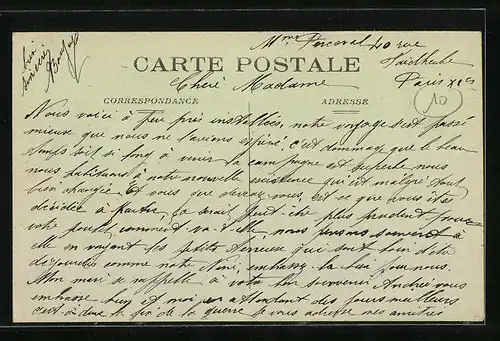 Mme Perceval 40 rue
CARTE POSTALE
Chère Madame
Paris XIe
10
CORRESPONDANCE
ADRESSE
Nous voici à peu près installées, notre voyage s'est passé
mieux que nous ne l'avions espéré, c'est dommage que le beau
temps soit si long à venir la campagne est superbe nous
nous habituons à notre nouvelle existence qui est malgré tout
bien changée. Et vous que devenez vous, est ce que vous êtes
décidée à partir, ça serait peut-être plus prudent pour
votre comment va-t-elle, nous pensons souvent à
elle en voyant les petits qui sont loin d'être
comme notre Néné, embrassez la bien pour nous.
Mon mari se rappelle à votre bon souvenir Andrée vous
embrasse bien et moi en attendant des jours meilleurs
c'est à dire la fin de la guerre je vous adresse mes amitiés
bien
sincères